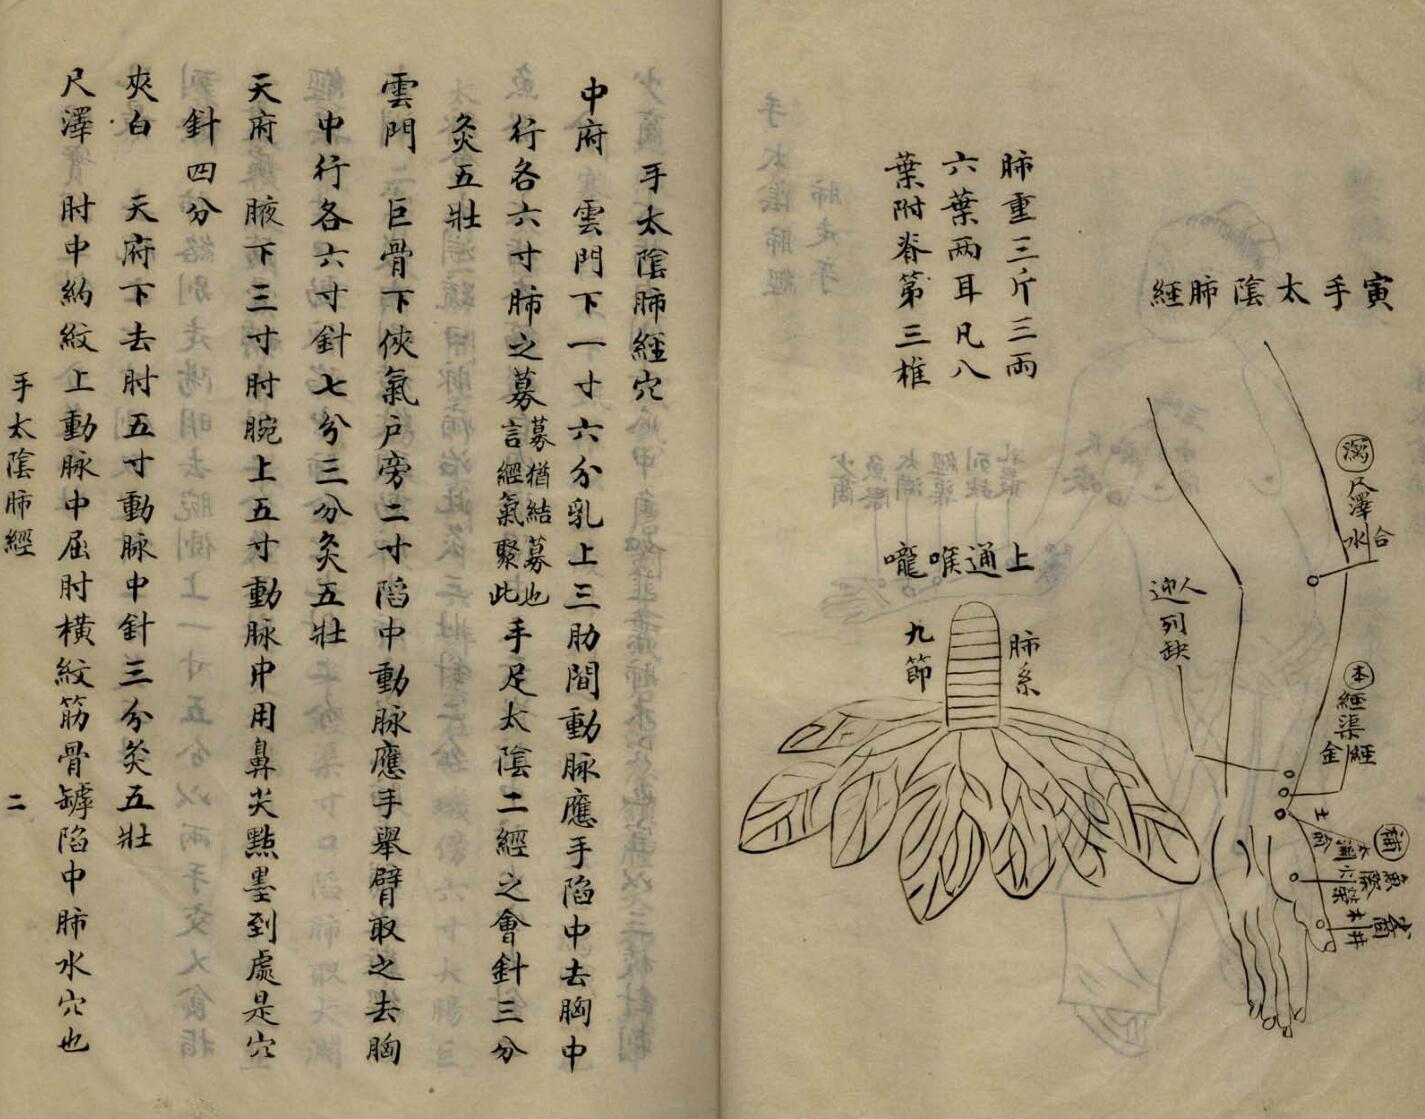 寅手太陰肺經
肺重三斤三兩
六葉兩耳凡八
葉附脊第三椎
上通喉嚨
肺系
九節
瀉
尺澤
合
水
人迎
列缺
本
經渠
經
金
補
太淵
俞
土
魚際
火
滎
少商
井
木
手太陰肺經穴
中府 雲門下一寸六分乳上三肋間動脉應手陷中去胸中
行各六寸肺之募募猶結募也言經氣聚此手足太陰二經之會針三分
灸五壯
雲門 巨骨下俠氣户旁二寸陷中動脉應手舉臂取之去胸
中行各六寸針七分三分灸五壯
天府 腋下三寸肘腕上五寸動脉中用鼻尖㸃墨到處是穴
針四分
夾白 天府下去肘五寸動脉中針三分灸五壯
尺澤 肘中約紋上動脉中屈肘橫紋筋骨罅陷中肺水穴也
手太陰肺經 二